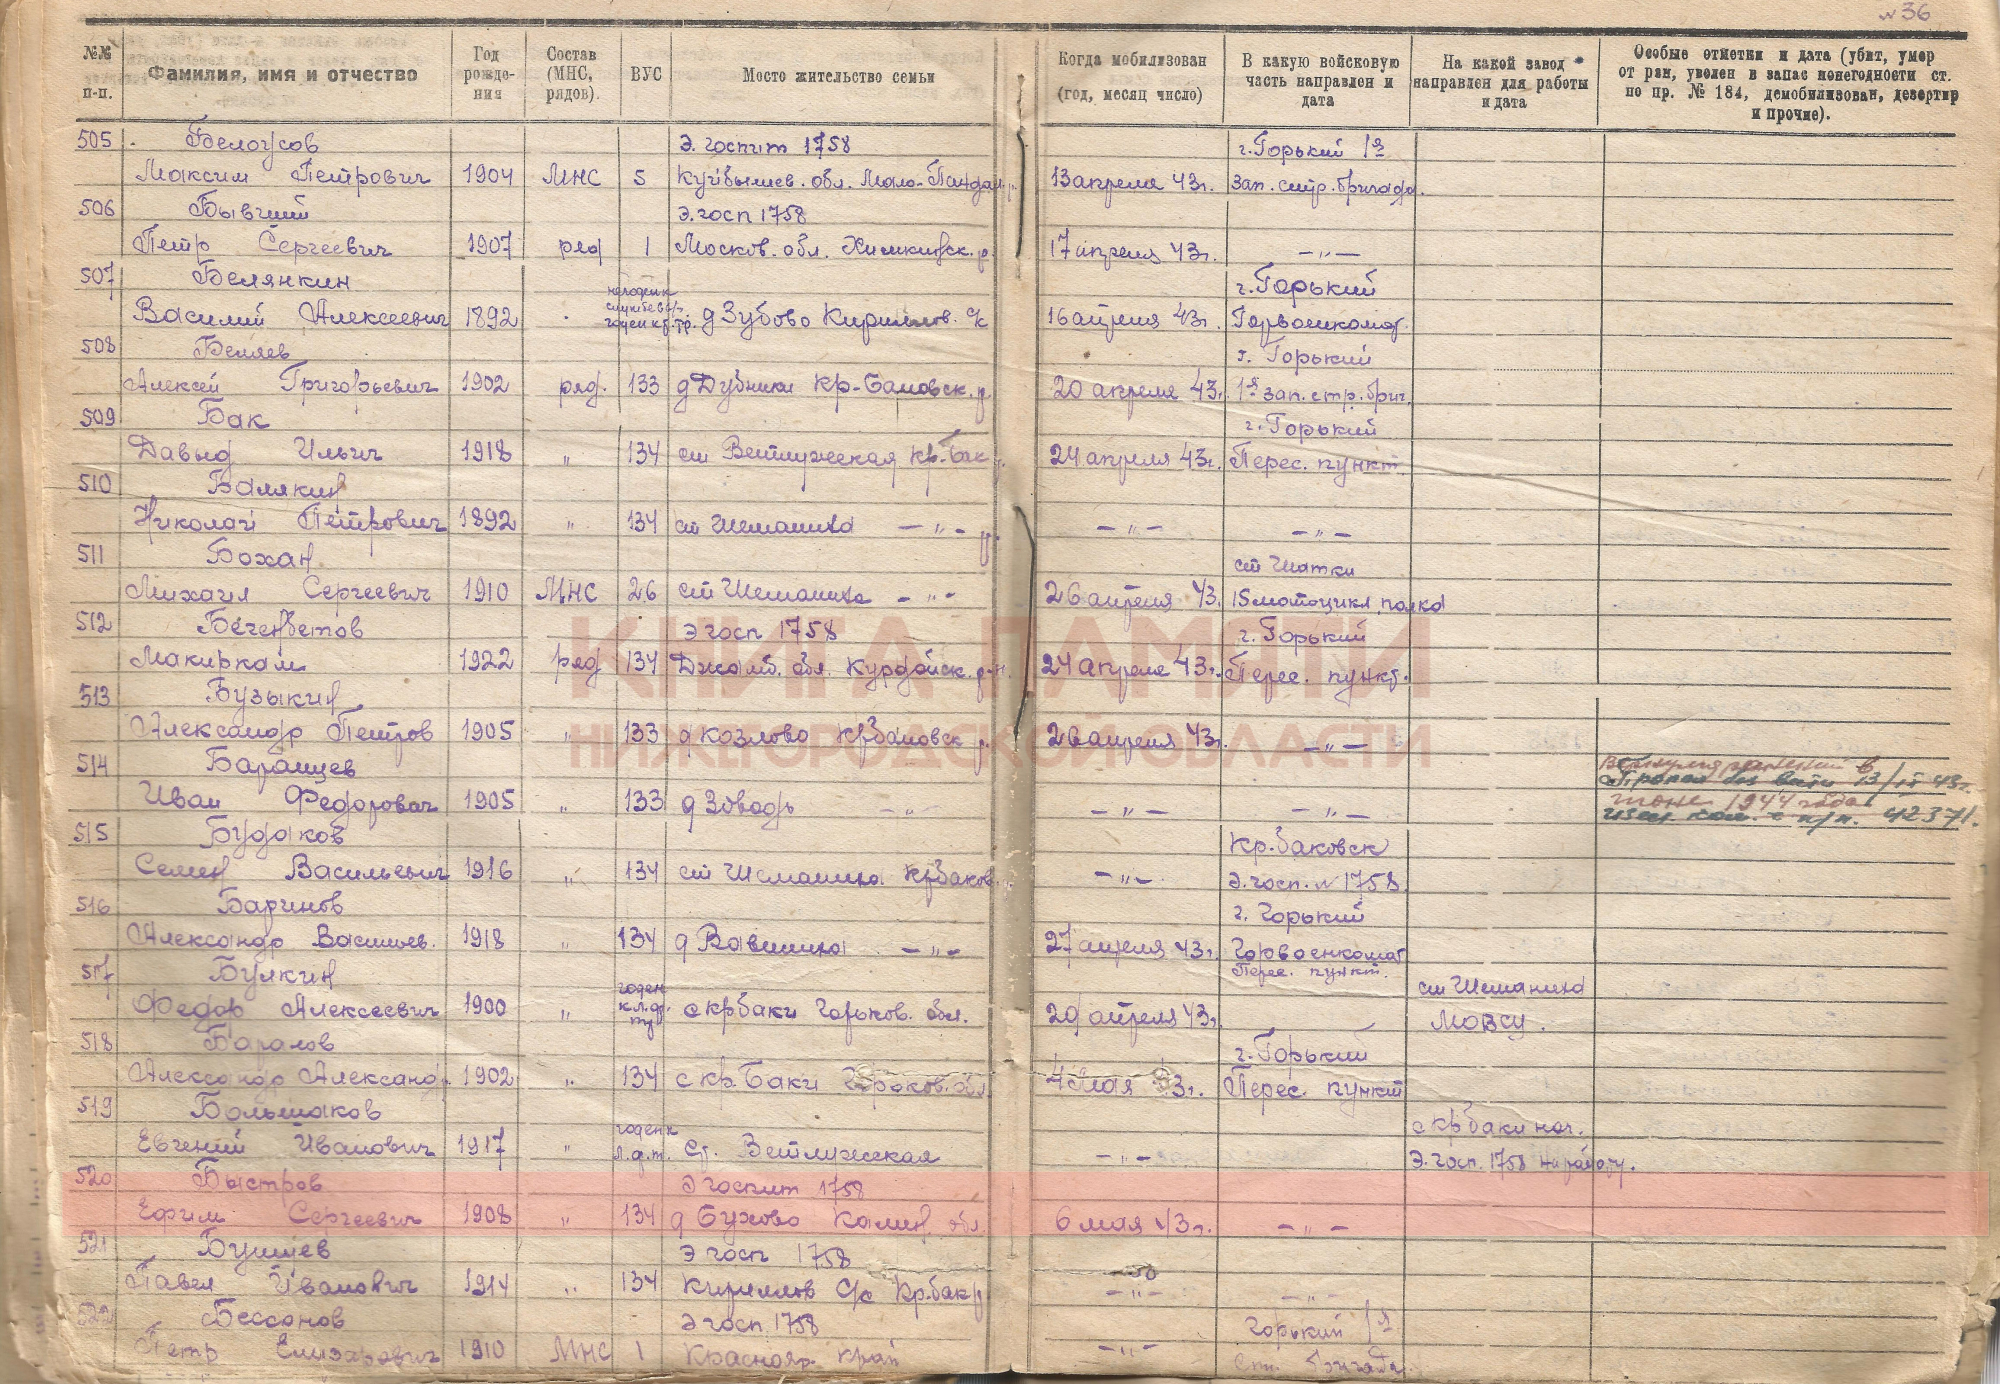 № 36
№№ п-п. Фамилия, имя и отчество Год рожде-ния Состав (МНС, рядов). ВУС Место жительство семьи Когда мобилизован (год, месяц число) В какую войсковую часть направлен и дата На какой завод направлен для работы и дата Особые отметки и дата (убит, умер от ран, уволен в запас понегодности ст. по пр. № 184, демобилизован, дезертир и прочие).
505 Белоусов Э. госпит 1758 г. Горький 1я
Максим Петрович 1904 МНС 5 Куйбышев. обл. Мало- 13 апреля 43г. зап. стр. бригада.
506 Бывший Э. госп 1758
Петр Сергеевич 1907 ряд 1 Москов. обл. Химкинск. р. 17 апреля 43г. — „ —
507 Белянкин г. Горький
Василий Алексеевич 1892 д Зубово Кириллов. с/с 16 апреля 43г. Горвоенкомат.
508 Беляев г. Горький
Алексей Григорьевич 1902 ряд. 133 д Дубники Кр-Баковск. р. 20 апреля 43г. 1я зап. стр. бриг.
509 Бак г. Горький
Давыд Ильич 1918 „ 134 ст Ветлужская Кр. Бак 24 апреля 43г. Перес. пункт.
510 Балякин
Николай Петрович 1892 „ 134 ст Шеманиха — „ — — „ — — „ —
511 Бохан ст Шатки
Михаил Сергеевич 1910 МНС 26 ст Шеманиха — „ — 26 апреля 43. 15 мотоцикл. полка
512 Бегенбетов Э госп 1758 г. Горький
Макиркам 1922 ряд 134 Джамб. обл. Курдайск. р-н. 24 апреля 43г. Перес. пункт.
513 Бузыкин
Александр Петров 1905 „ 133 д Козлово Кр Баковск р. 26 апреля 43г. — „ —
514 Баранцев
Иван Федорович 1905 „ 133 д Зоводь — „ — — „ — — „ — Пропал без вести 13/ 43г.
июне 1944 года
п/п. 42371.
515 Будаков Кр. баковск
Семен Васильевич 1916 „ 134 ст Шеманиха Кр Баков. — „ — Э. госп. № 1758
516 Баринов г. Горький
Александр Васильев. 1918 „ 134 д Вавилиха — „ — 27 апреля 43г. Горвоенкомат
517 Булкин Перес. пункт. ст Шеманиха
Федор Алексеевич 1900 „ с кр баки Горьков. обл. 29 апреля 43г. МОВСУ.
518 Баралов г. Горький
Александр Александр. 1902 „ 134 с кр. Баки Горьков. обл. 4 мая 43г. Перес. пункт
519 Большаков с кр баки нач.
Евгений Иванович 1917 „ годен к л.ф.т. ст. Ветлужская — „ — Э. госп. 1758 на работу.
520 Быстров Э госпит 1758
Ефим Сергеевич 1908 „ 134 д Бухово Калин. обл. 6 мая 43г. — „ —
521 Э госп 1758
Павел Иванович 1914 „ 134 Кириллов С/с Кр.бак р — „ — — „ —
522 Бессонов Э госп 1758 Горький 1я
Петр Елизарович 1910 МНС 1 Краснояр. край — „ — бригада.
КНИГА ПАМЯТИ
НИЖЕГОРОДСКОЙ ОБЛАСТИ